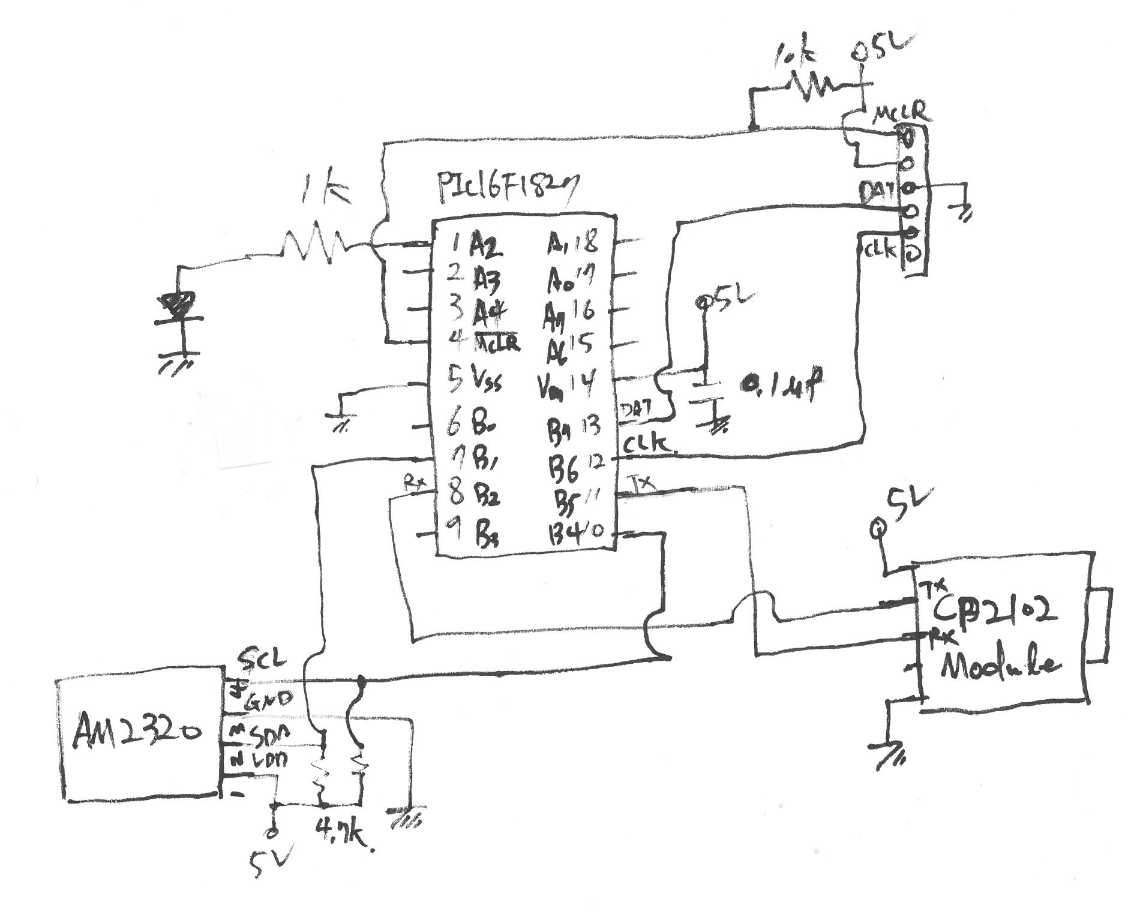 10k
5V
MCLR
DAT
CLK
1k
PIC16F1827
1 A2
A1 18
2 A3
A0 17
3 A4
A7 16
4 MCLR
A6 15
5 Vss
14
6 B0
13
7 B1
B6 12
8 B2
B5 11
9 B3
B4 10
5V
0.1μF
DAT
CLK.
Rx
TX
5V
TX
CP2102
RX
Module
SCL
4
GND
3
SDA
2
VDD
1
AM2320
4.7k.
5V